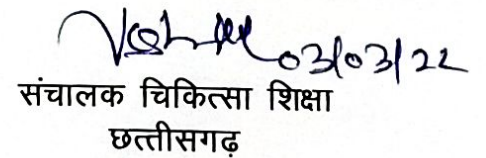 03/03/22
संचालक चिकित्सा शिक्षा
छत्तीसगढ़